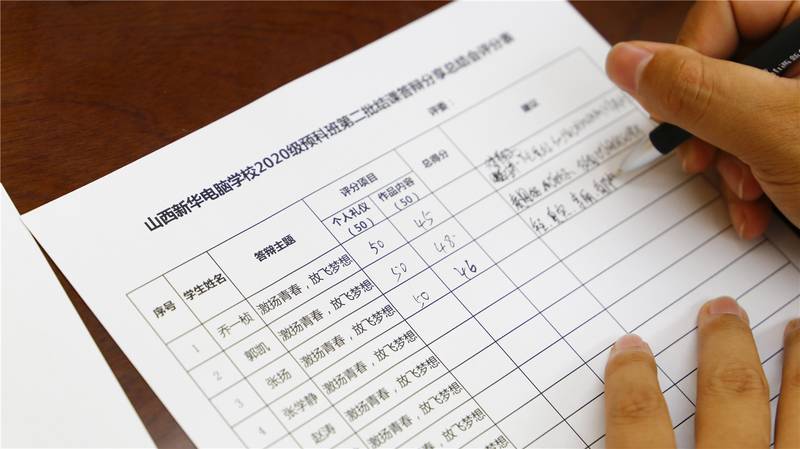 山西新华电脑学校2020级预科班第二批结课答辩分享总结会评分表
评委：
序号 学生姓名 答辩主题 评分项目 总得分 建议
个人礼仪（50） 作品内容（50）
1 乔一桢 激扬青春，放飞梦想 50 45
2 郭凯 激扬青春，放飞梦想 50 48
3 张扬 激扬青春，放飞梦想 50 46
4 张学静 激扬青春，放飞梦想
赵涛 激扬青春，放飞梦想
激扬青春，放飞梦想
放飞梦想